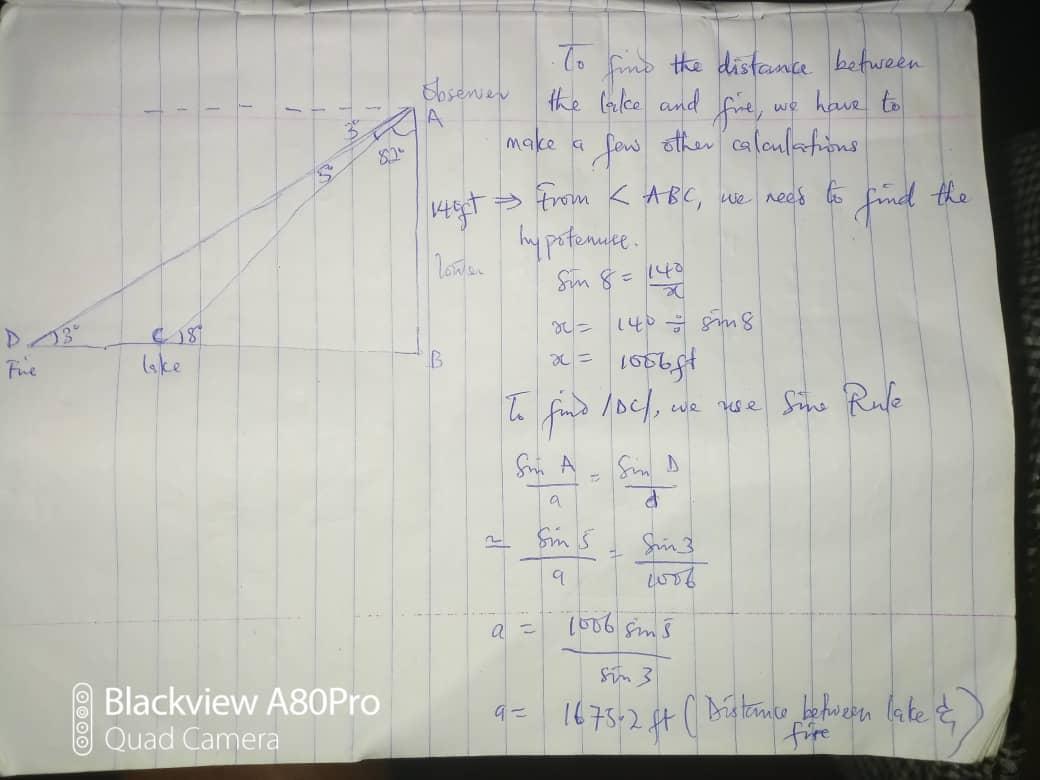 To find the distance between
Observer the lake and fire, we have to
A
make a few other calculations
3°
82°
5°
140ft ⇒ From < ABC, we need to find the
hypotenuse.
tower
Sin 8 = 140/x
x = 140 ÷ sin 8
x = 1006ft
D 3° C 8° B
Fire lake
To find /DC/, we use Sine Rule
Sin A / a = Sin D / d
= Sin 5 / a = Sin 3 / 1006
a = 1006 sin 5 / sin 3
a = 1675.2 ft (Distance between lake &
fire)
Blackview A80Pro
Quad Camera